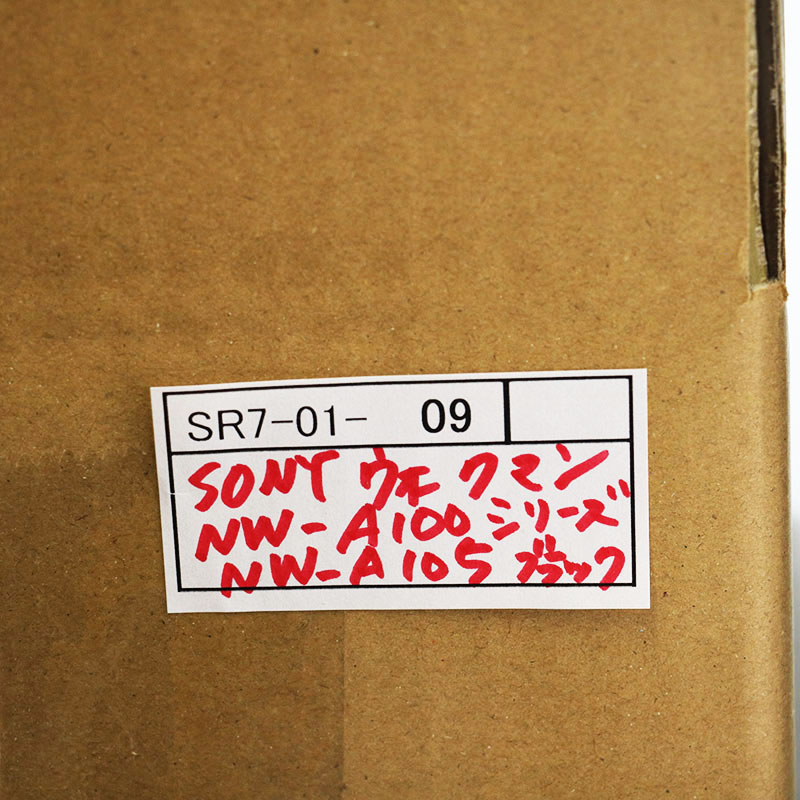 SR7-01- 09
SONY ウォークマン
NW-A100シリーズ
NW-A105 ブラック